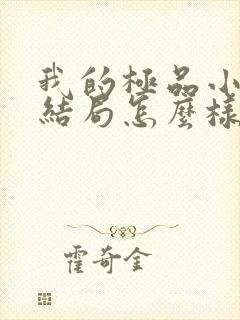 我的極品小
結局怎麼樣
霍奇金